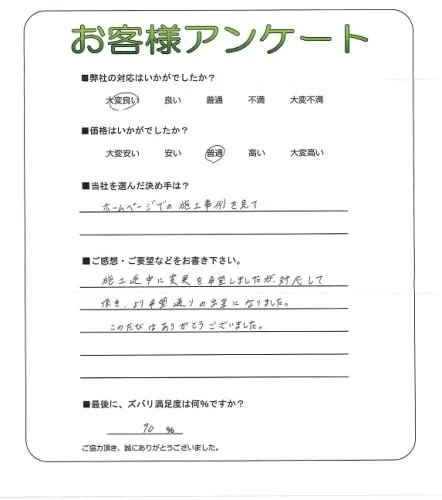 お客様アンケート
■弊社の対応はいかがでしたか?
大変良い 良い 普通 不満 大変不満
■価格はいかがですか?
大変安い 安い 普通 高い 大変高い
■当社を選んだ決め手は?
ホームページでの施工事例を見て
■ご感想・ご要望などをお書き下さい。
施工途中に変更を希望しましたが、対応して
頂き、より希望通りの出来になりました。
このたびはありがとうございました。
■最後に、ズバリ満足度は何%ですか?
90 %
ご協力頂き、誠にありがとうございました。